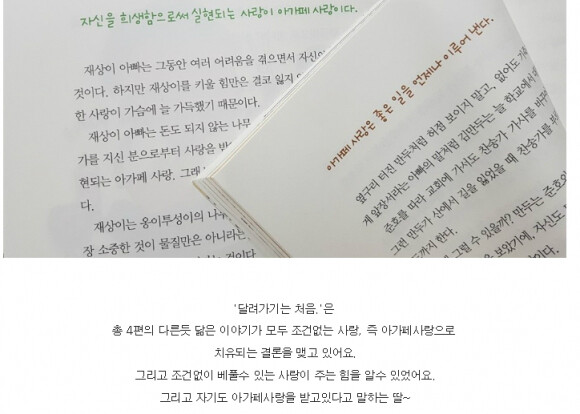 자신을 희생함으로써 실현되는 사랑이 아가페 사랑이다.
재상이 아빠는 그동안 여러 어려움을 겪으면서 자신의
것이다. 하지만 재상이를 키울 힘만은 결코 잃지
한 사랑이 가슴에 늘 가득했기 때문이다.
재상이 아빠는 돈도 되지 않는 나무
가를 지신 분으로부터 사랑을
현되는 아가페 사랑. 그래
다.
재상이는 옹이투성이의
장 소중한 것이 물질만은 아니라는
아가페 사랑은 좋은 일을 언제나 이루어 낸다.
옆구리 터진 만두처럼 하점 보이지 말고, 없어도
게 앞장서라는 아빠의 말처럼 김만두는 늘 학교에서
준호를 따라 교회에 가서도 찬송가 가사를
그런 만두가 산에서 길을 잃었을 때 찬송가를
까지 한다.
그럴 수 있을까? 만두는 준호의
보았기에, 자신도
'달려가기는 처음.'은
총 4편의 다른듯 닮은 이야기가 모두 조건없는 사랑, 즉 아가페사랑으로
치유되는 결론을 맺고 있어요.
그리고 조건없이 베풀수 있는 사랑이 주는 힘을 알수 있었어요.
그리고 자기도 아가페사랑을 받고있다고 말하는 딸~